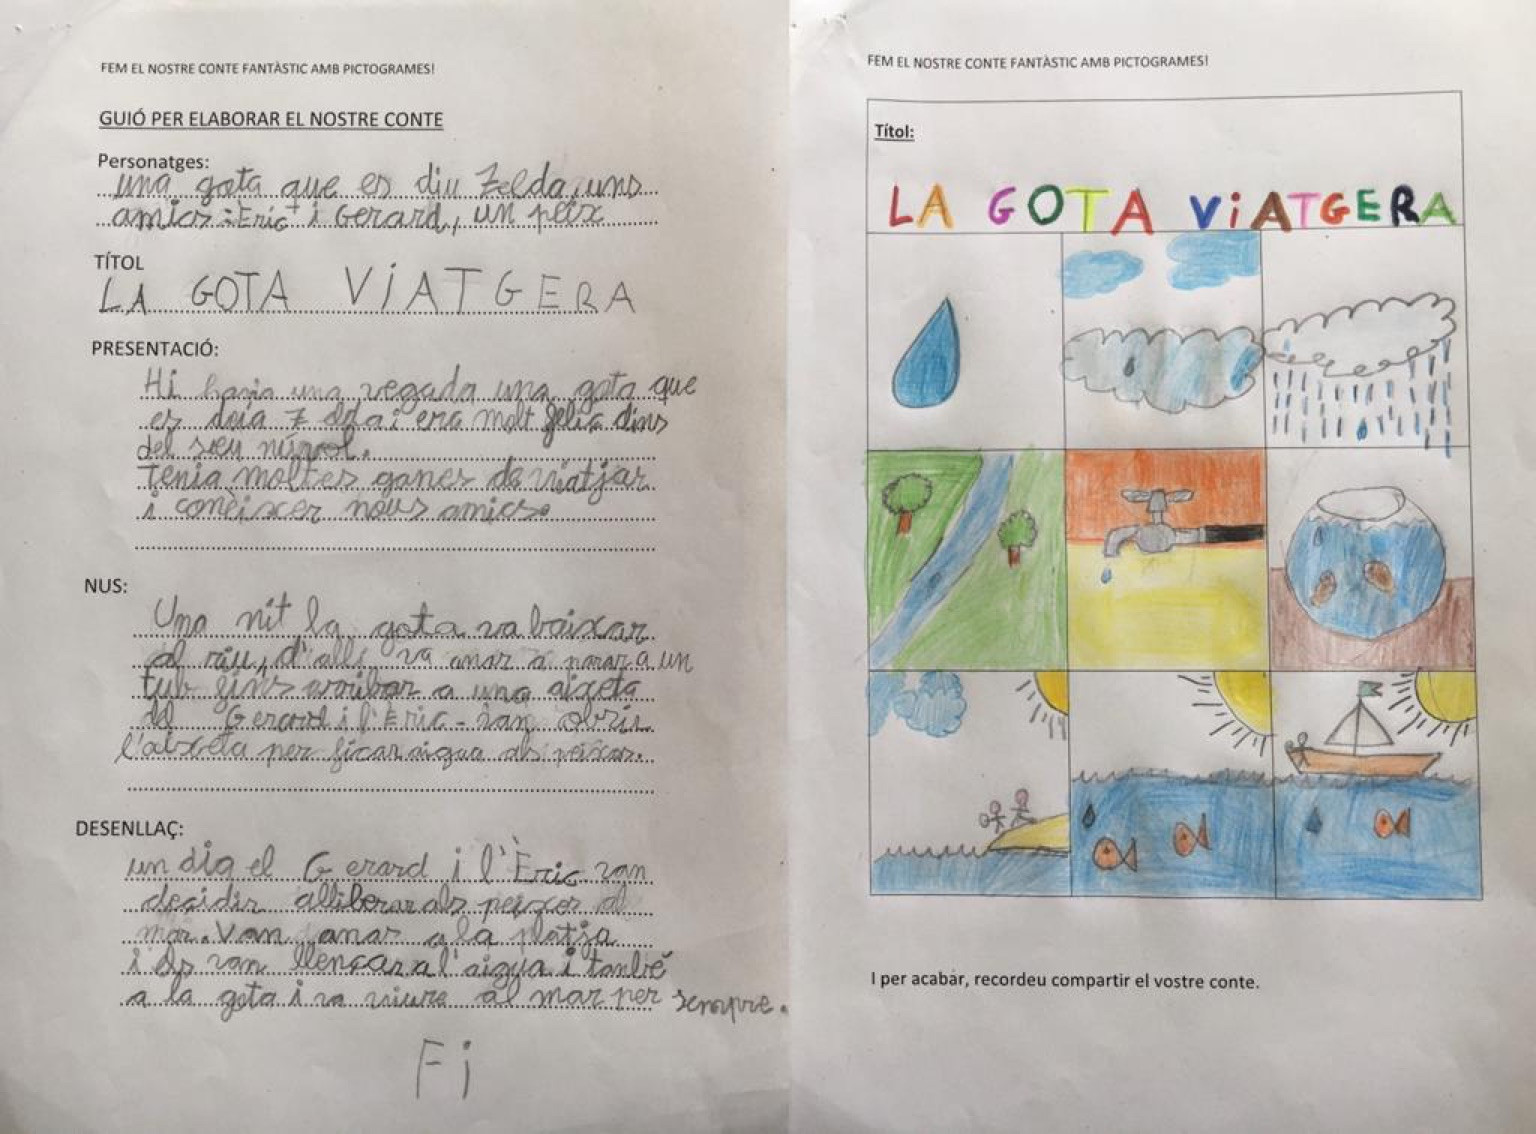 FEM EL NOSTRE CONTE FANTÀSTIC AMB PICTOGRAMES!
GUIÓ PER ELABORAR EL NOSTRE CONTE
Personatges:
una gota que es diu Zelda, uns
amics: Èric i Gerard, un peix
TÍTOL
LA GOTA ViATGERA
PRESENTACIÓ:
Hi havia una vegada una gota que
es deia Zelda i era molt feliç dins
del seu núvol.
Tenia moltes ganes de viatjar
i conèixer nous amics.
NUS:
Una nit la gota va baixar
al riu, d'allí va anar a parar a un
tub fins arribar a una aixeta
del Gerard i l'Èric. Van obrir
l'aixeta per ficar aigua als peixos.
DESENLLAÇ:
un dia el Gerard i l'Èric van
decidir alliberar als peixos al
mar. Van anar a la platja
i els van llençar a l'aigua i també
a la gota i va viure al mar per sempre.
Fi
FEM EL NOSTRE CONTE FANTÀSTIC AMB PICTOGRAMES!
Títol:
LA GOTA ViATGERA
I per acabar, recordeu compartir el vostre conte.